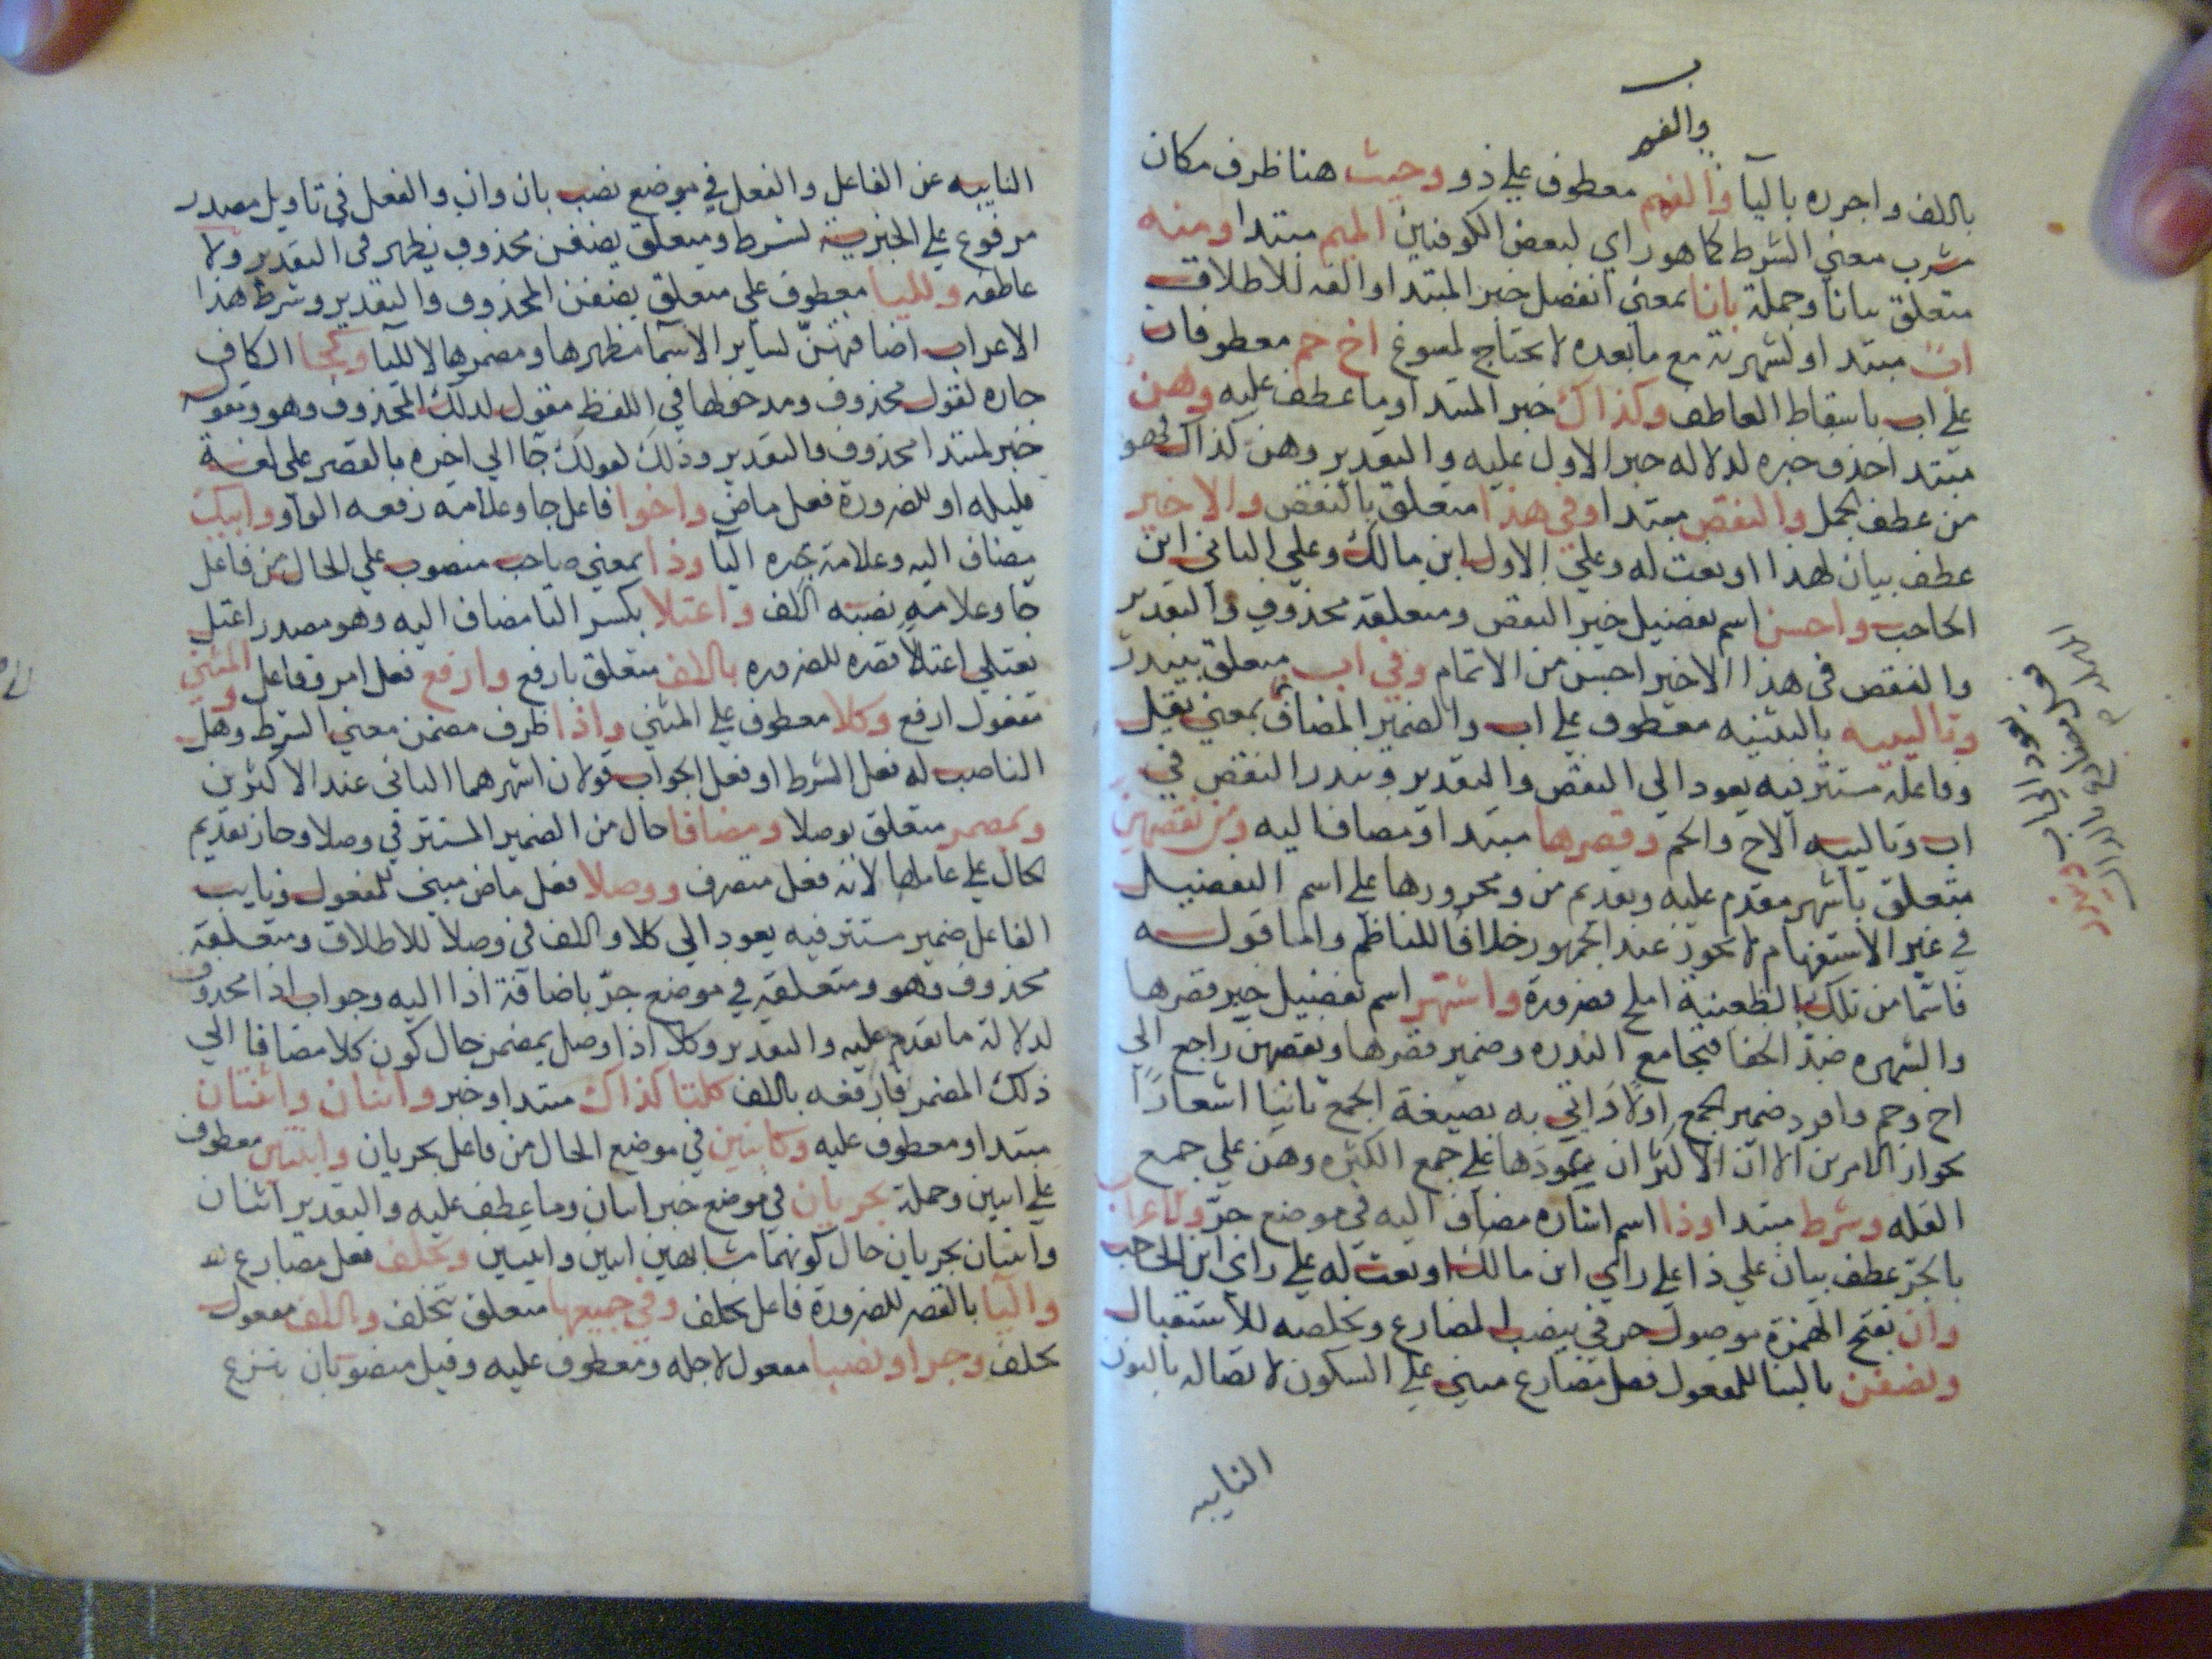 والفم
بالالف واجرره بالياآ والفم معطوف علي ذو وحيث هنا ظرف مكان
مشرب معني الشرط كما هو راي لبعض الكوفيين الميم مبتدا ومنه
متعلق ببانا وجملة بانا بمعني انفصل خبر المبتدا والفه للاطلاق
اب مبتدا ولشهرته مع ما بعده لا يحتاج لمسوغ اخ حم معطوفان
علي اب باسقاط العاطف وكذاك خبر المبتدا وما عطف عليه وهن
مبتدا حذف خبره لدلاله خبر الاول عليه والتقدير وهن كذاك فهو
من عطف الجمل والنقص مبتدا وفي هذا متعلق بالنقص والاخير
عطف بيان لهذا او نعت له وعلي الاول ابن مالك وعلي الثاني ابن
الحاجب واحسن اسم تفضيل خبر النقص ومتعلقه محذوف والتقدير
والنقص في هذا الاخير احسن من الاتمام وفي اب متعلق بيندر
وتالييه بالتثنيه معطوف علي اب والضمير المضاف بمعني يقل
وفاعله مستتر فيه يعود الي النقص والتقدير ويندر النقص في
اب وتالييه الاخ والحم وقصرها مبتدا ومضاف اليه ومن نقصهن
متعلق باشهر مقدم عليه وتقديم من ومجرورها علي اسم التفضيل
في غير الاستفهام لا يجوز عند الجمهور خلافا للناظم واما قوله
فاسما من تلك الظعينة املح فضرورة واشهر اسم تفضيل خبر قصرها
والشهره ضد الخفا فيجامع الندره وضمير قصرها ونقصهن راجع الي
اخ وحم وافرد ضمير الجمع اولا واتي به بصيغة الجمع ثانيا اشعارا
بجواز الامرين الا ان الاكثر ان يعودها علي جمع الكثره وهن علي جمع
القله وشرط مبتدا وذا اسم اشاره مضاف اليه في موضع جر والاعراب
بالجر عطف بيان علي ذا علي راي ابن مالك او نعت له علي راي ابن الحاجب
وان بفتح الهمزة موصول حرفي ينصب المضارع ويخلصه للاستقبال
ويضفن بالبنا للمفعول فعل مضارع مبني علي السكون لاتصاله بالنون
النايبه
النايبه عن الفاعل والفعل في موضع نصب بان وان والفعل في تاويل مصدر
مرفوع علي الخبرية لشرط ومتعلق يضفن محذوف يظهر في التقدير ولا
عاطفه ولليا معطوف علي متعلق يضفن المحذوف والتقدير وشرط هذا
الاعراب اضافتهن لساير الاسما مظهرها ومضمرها لا لليا وكجا الكاف
جاره لقول محذوف ومدخولها في اللفظ مقول لذلك المحذوف وهو ومقوله
خبر لمبتدا محذوف والتقدير وذلك كقولك جا الي اخره بالقصر علي لغة
قليله او للضرورة فعل ماض واخوا فاعل جا وعلامة رفعه الواو وابيك
مضاف اليه وعلامة جره اليا وذا بمعني صاحب منصوب علي الحال من فاعل
جا وعلامة نصبه الالف واعتلا بكسر التا مضاف اليه وهو مصدر اعتلي
يعتلي اعتلا قصره للضروره بالالف متعلق بارفع وارفع فعل امر وفاعل والمثني
مفعول ارفع وكلا معطوف علي المثني واذا ظرف مضمن معني الشرط وهل
الناصب له فعل الشرط او فعل الجواب قولان اشهرهما الثاني عند الاكثرين
وبمضمر متعلق بوصلا ومضافا حال من الضمير المستتر في وصلا وجاز تقديم
الحال علي عاملها لانه فعل متصرف ووصلا فعل ماض مبني للمفعول ونايب
الفاعل ضمير مستتر فيه يعود الي كلا والالف في وصلا للاطلاق ومتعلقه
محذوف وهو ومتعلقه في موضع جر باضافة اذا اليه وجواب اذا محذوف
لدلالة ما تقدم عليه والتقدير وكلا اذا وصل بمضمر حال كون كلا مضافا الي
ذلك المضمر فارفعه بالالف كلتا كذاك مبتدا وخبر واثنان واثنتان
مبتدا ومعطوف عليه وكابنين في موضع الحال من فاعل يجريان وابنتين معطوف
علي ابنين وجملة يجريان في موضع خبر اثنان وما عطف عليه والتقدير اثنان
واثنتان يجريان حال كونهما مشابهين ابنين وابنتين وتخلف فعل مضارع
واليا بالقصر للضرورة فاعل تخلف وفي جميعها متعلق بتخلف والالف مفعول
تخلف وجرا ونصبا مفعول لاجله ومعطوف عليه وقيل منصوبان بنزع